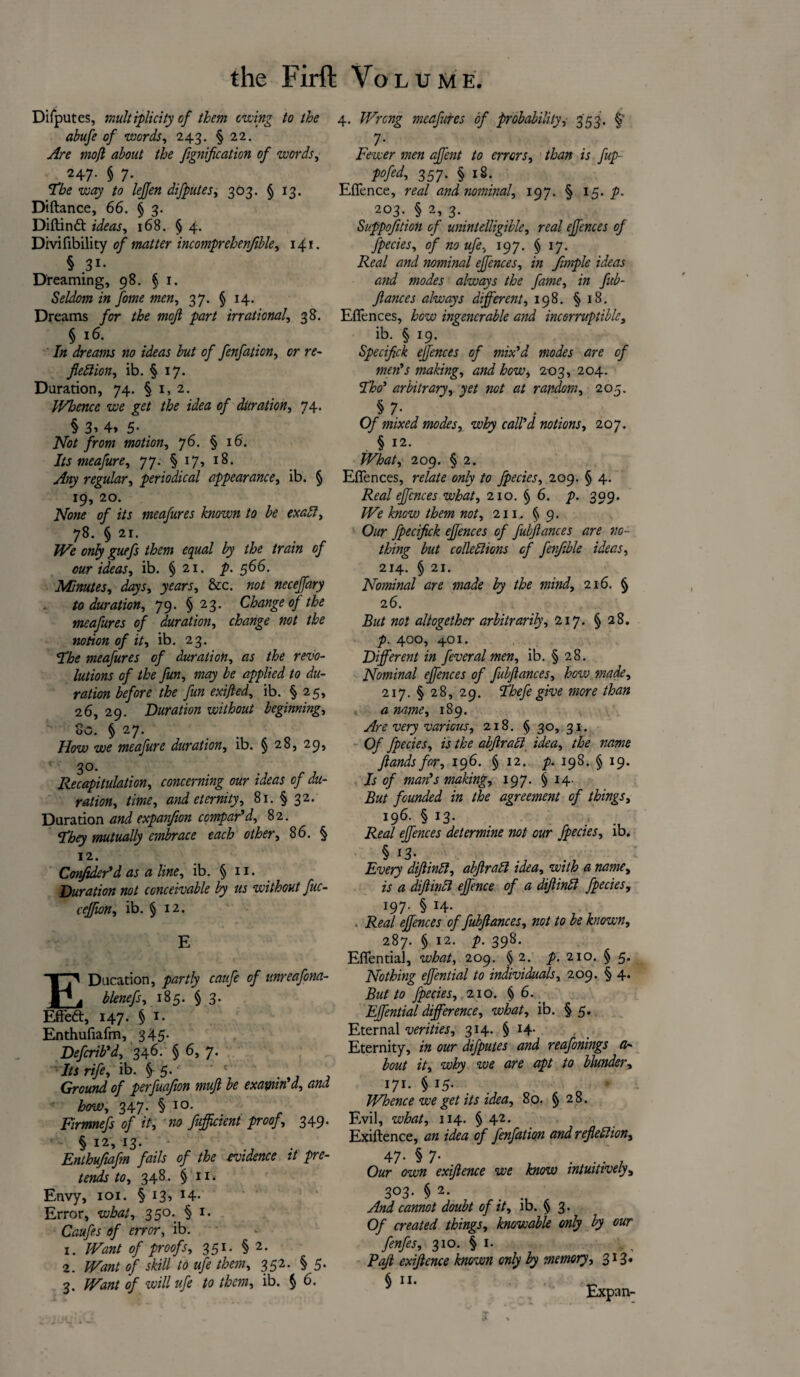 the Firſt VOLUME.
Diſputes, multiplicity of them owing to the
abuſe of words, 243. § 22.
Are moſt about the ſignification of words,
247. § 7.
The way to leſſen diſputes, 303. § 13.
Diſtance, 66. § 3.
Diſtinct ideas, 168. § 4.
Diviſibility of matter incomprehenſible, 141.
§ 31.
Dreaming, 98. § 1.
Seldom in ſome men, 37. § 14.
Dreams for the moſt part irrational, 38.
§ 16.
In dreams no ideas but of ſenſation, or re-
flection, ib. § 17.
Duration, 74. § 1, 2.
Whence we get the idea of duration, 74.
§ 3, 4, 5.
Not from motion, 76. § 16.
Its meaſure, 77. § 17, 18.
Any regular, periodical appearance, ib. §
19, 20.
None of its meaſures known to be exact,
78. § 21.
We only gueſs them equal by the train of
our ideas, ib. § 21. p. 566.
Minutes, days, years, &c. not neceſſary
to duration, 79. § 23. Change of the
meaſures of duration, change not the
notion of it, ib. 23.
The meaſures of duration, as the revo-
lutions of the ſun, may be applied to du-
ration before the ſun exiſted, ib. § 25,
26, 29. Duration without beginning,
80. § 27.
How we meaſure duration, ib. § 28, 29,
30.
Recapitulation, concerning our ideas of du-
ration, time, and eternity, 81. § 32.
Duration and expanſion compar'd, 82.
They mutually embrace each other, 86. §
12.
Conſider'd as a line, ib. § 11.
Duration not conceivable by us without ſuc-
ceſſion, ib. § 12.
E
EDucation, partly cauſe of unreaſona-
bleneſs, 185. § 3.
Effect, 147. § 1.
Enthuſiaſm, 345.
Deſcrib'd, 346. § 6, 7.
Its riſe, ib. § 5.
Ground of perſuaſion muſt be examin'd, and
how, 347. § 10.
Firmneſs of it, no ſufficient proof, 349.
§ 12, 13.
Enthuſiaſm fails of the evidence it pre-
tends to, 348. § 11.
Envy, 101. § 13, 14.
Error, what, 350. § 1.
Cauſes of error, ib.
1. Want of proofs, 351. § 2.
2. Want of skill to uſe them, 352. § 5.
3. Want of will uſe to them, ib. § 6.
4. Wrong meaſures of probability, 353. §
7.
Fewer men aſſent to errors, than is ſup-
poſed, 357. § 18.
Eſſence, real and nominal, 197. § 15. p.
203. § 2, 3.
Suppoſition of unintelligible, real eſſences of
ſpecies, of no uſe, 197. § 17.
Real and nominal eſſences, in ſimple ideas
and modes always the ſame, in ſub-
ſtances always different, 198. § 18.
Eſſences, how ingenerable and incorruptible,
ib. § 19.
Specifick eſſences of mix'd modes are of
men's making, and how, 203, 204.
Tho' arbitrary, yet not at random, 205.
§ 7.
Of mixed modes, why call'd notions, 207.
§ 12.
What, 209. § 2.
Eſſences, relate only to ſpecies, 209. § 4.
Real eſſences what, 210. § 6. p. 399.
We know them not, 211. § 9.
Our ſpecifick eſſences of ſubſtances are no-
thing but collections of ſenſible ideas,
214. § 21.
Nominal are made by the mind, 216. §
26.
But not altogether arbitrarily, 217. § 28.
p. 400, 401.
Different in ſeveral men, ib. § 28.
Nominal eſſences of ſubſtances, how made,
217. § 28, 29. Theſe give more than
a name, 189.
Are very various, 218. § 30, 31.
Of ſpecies, is the abſtract idea, the name
ſtands for, 196. § 12. p. 198. § 19.
Is of man's making, 197. § 14.
But founded in the agreement of things,
196. § 13.
Real eſſences determine not our ſpecies, ib.
§ 13.
Every diſtinct, abſtract idea, with a name,
is a diſtinct eſſence of a diſtinct ſpecies,
197. § 14.
Real eſſences of ſubſtances, not to be known,
287. § 12. p. 398.
Eſſential, what, 209. § 2. p. 210. § 5.
Nothing eſſential to individuals, 209. § 4.
But to ſpecies, 210. § 6.
Eſſential difference, what, ib. § 5.
Eternal verities, 314. § 14.
Eternity, in our diſputes and reaſonings a-
bout it, why we are apt to blunder,
171. § 15.
Whence we get its idea, 80. § 28.
Evil, what, 114. § 42.
Exiſtence, an idea of ſenſation and reflection,
47. § 7.
Our own exiſtence we know intuitively,
303. § 2.
And cannot doubt of it, ib. § 3.
Of created things, knowable only by our
ſenſes, 310. § 1.
Paſt exiſtence known only by memory, 313.
§ 11.
Expan-